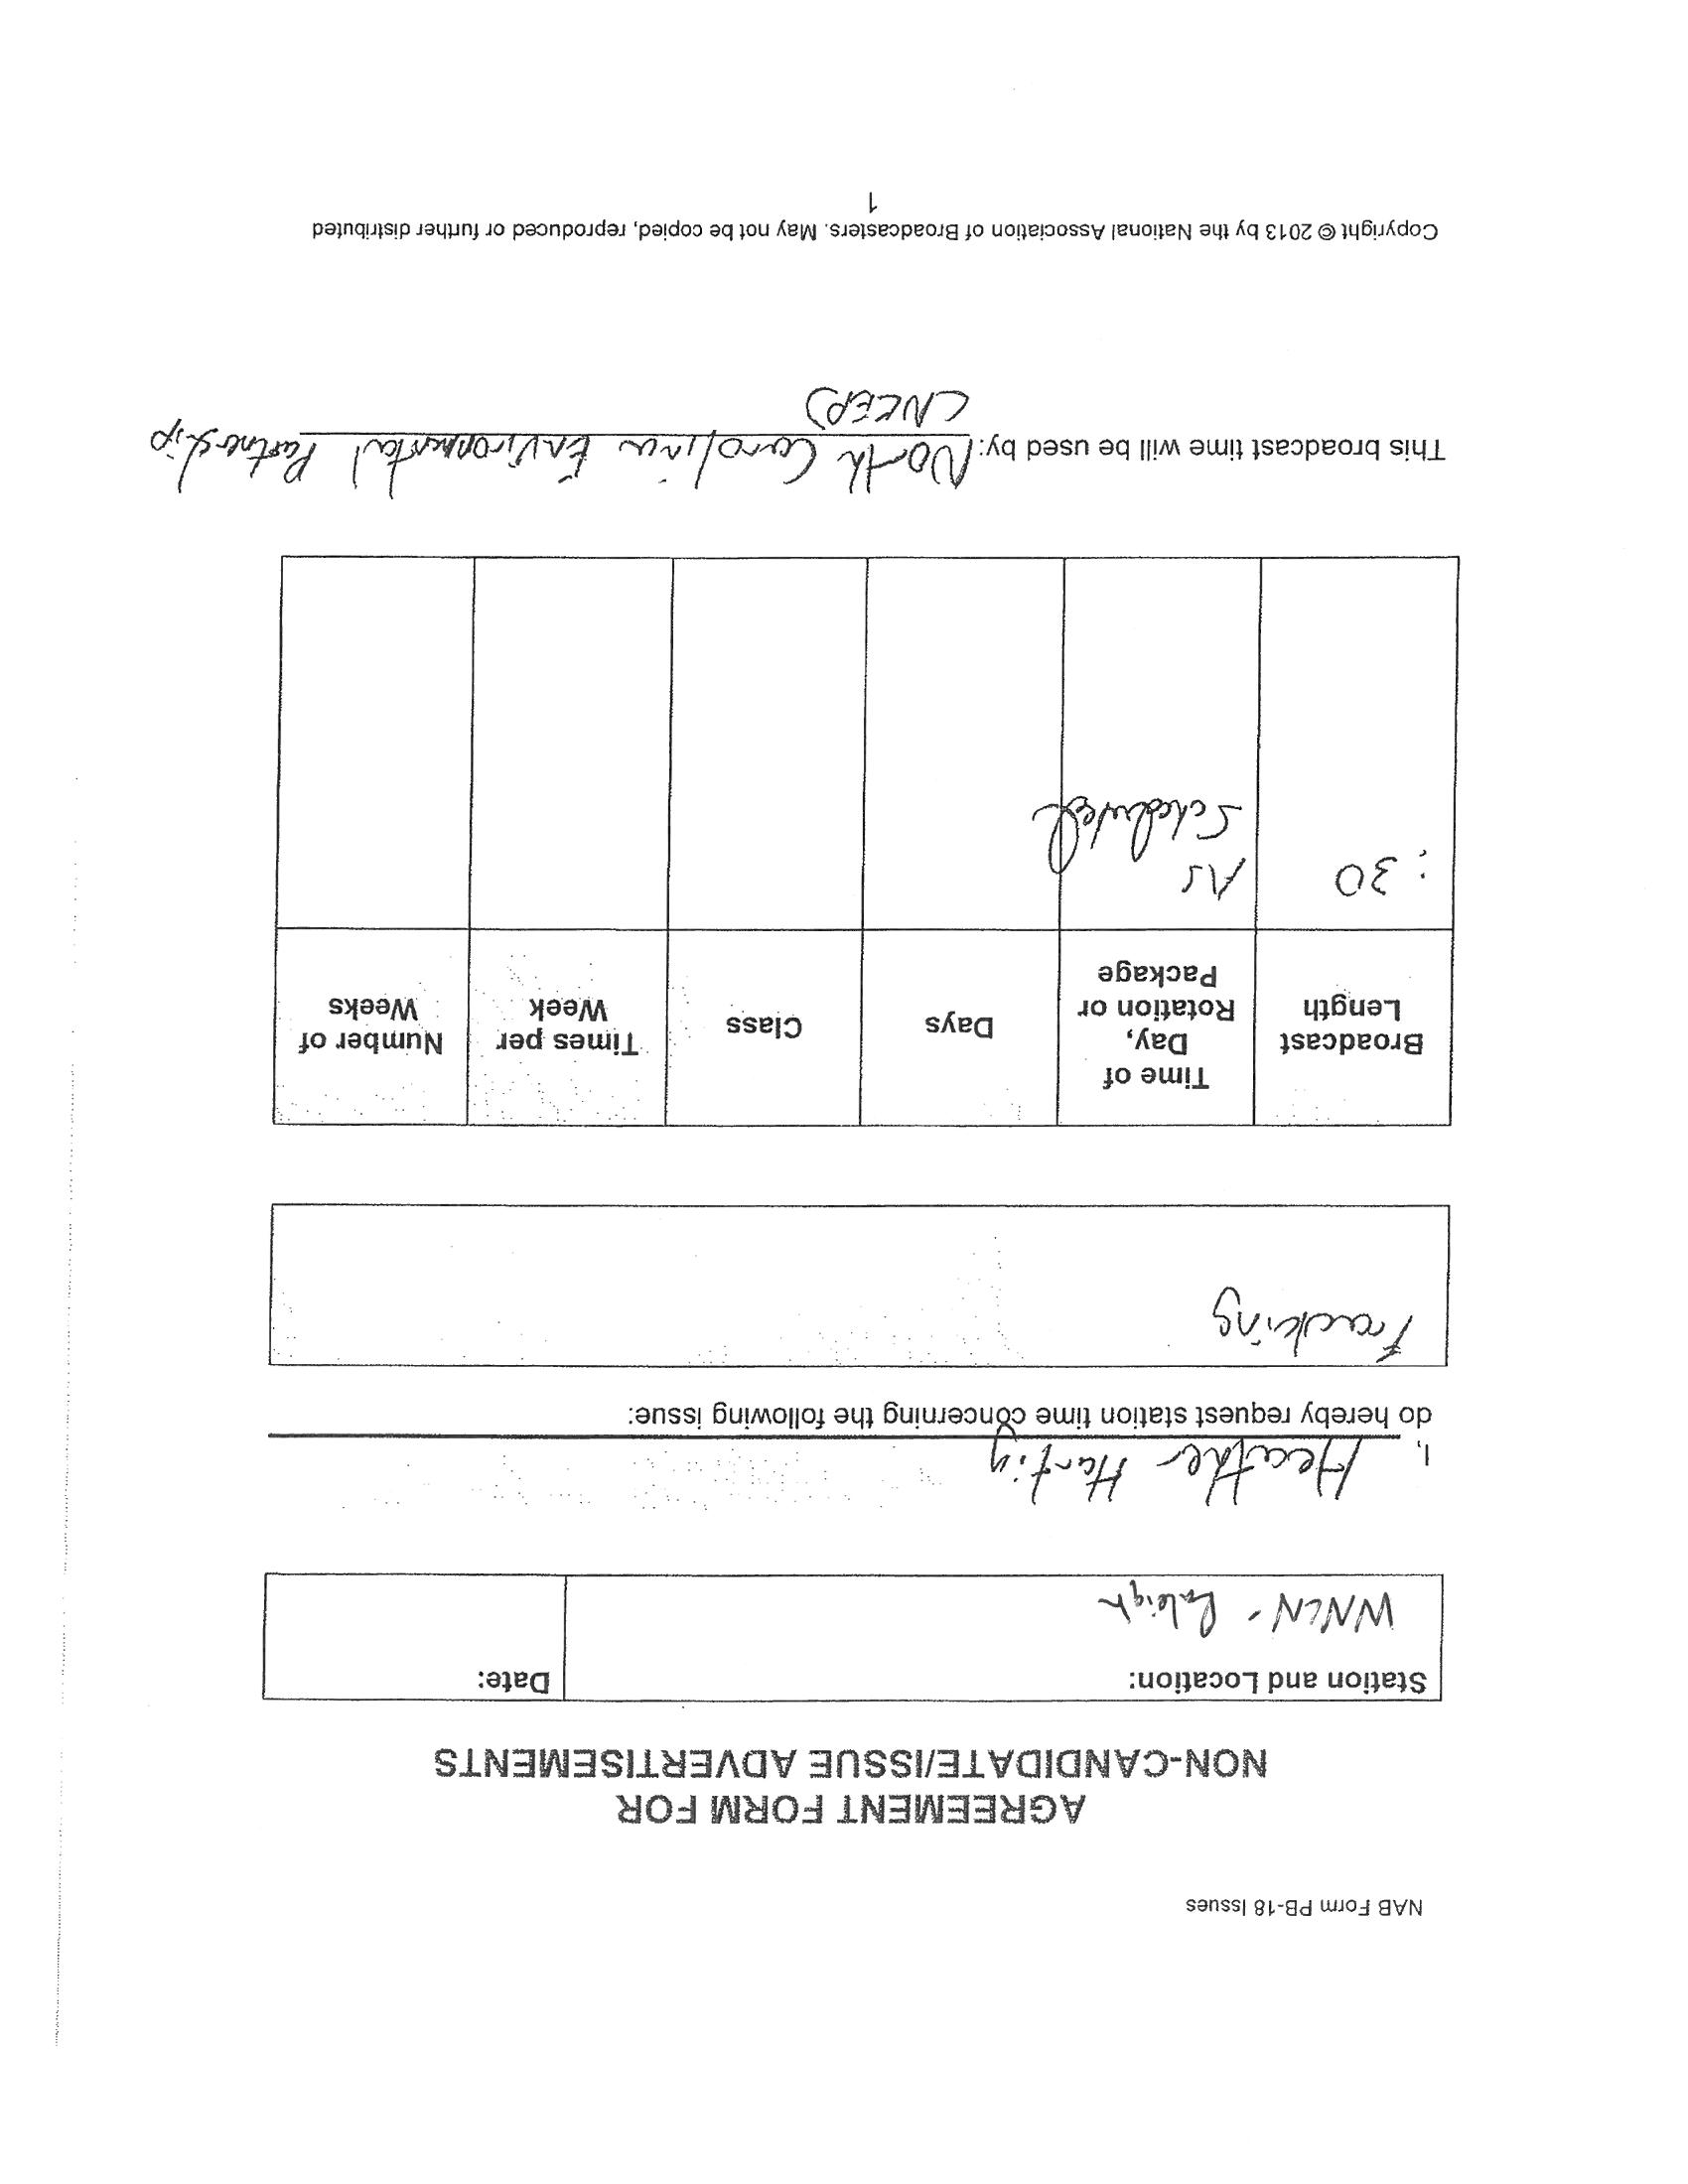 NAB Form PB-18 Issues
AGREEMENT FORM FOR
NON-CANDIDATE/ISSUE ADVERTISEMENTS
Station and Location:
Date:
WNCN - Raleigh
I, Heather Hartig
do hereby request station time concerning the following issue:
Fracking
Broadcast
Length
Time of
Day,
Rotation or
Package
Days
Class
Times per
Week
Number of
Weeks
:30
As
Scheduled
This broadcast time will be used by: North Carolina Environmental Partnership
(NCEP)
Copyright © 2013 by the National Association of Broadcasters. May not be copied, reproduced or further distributed
1